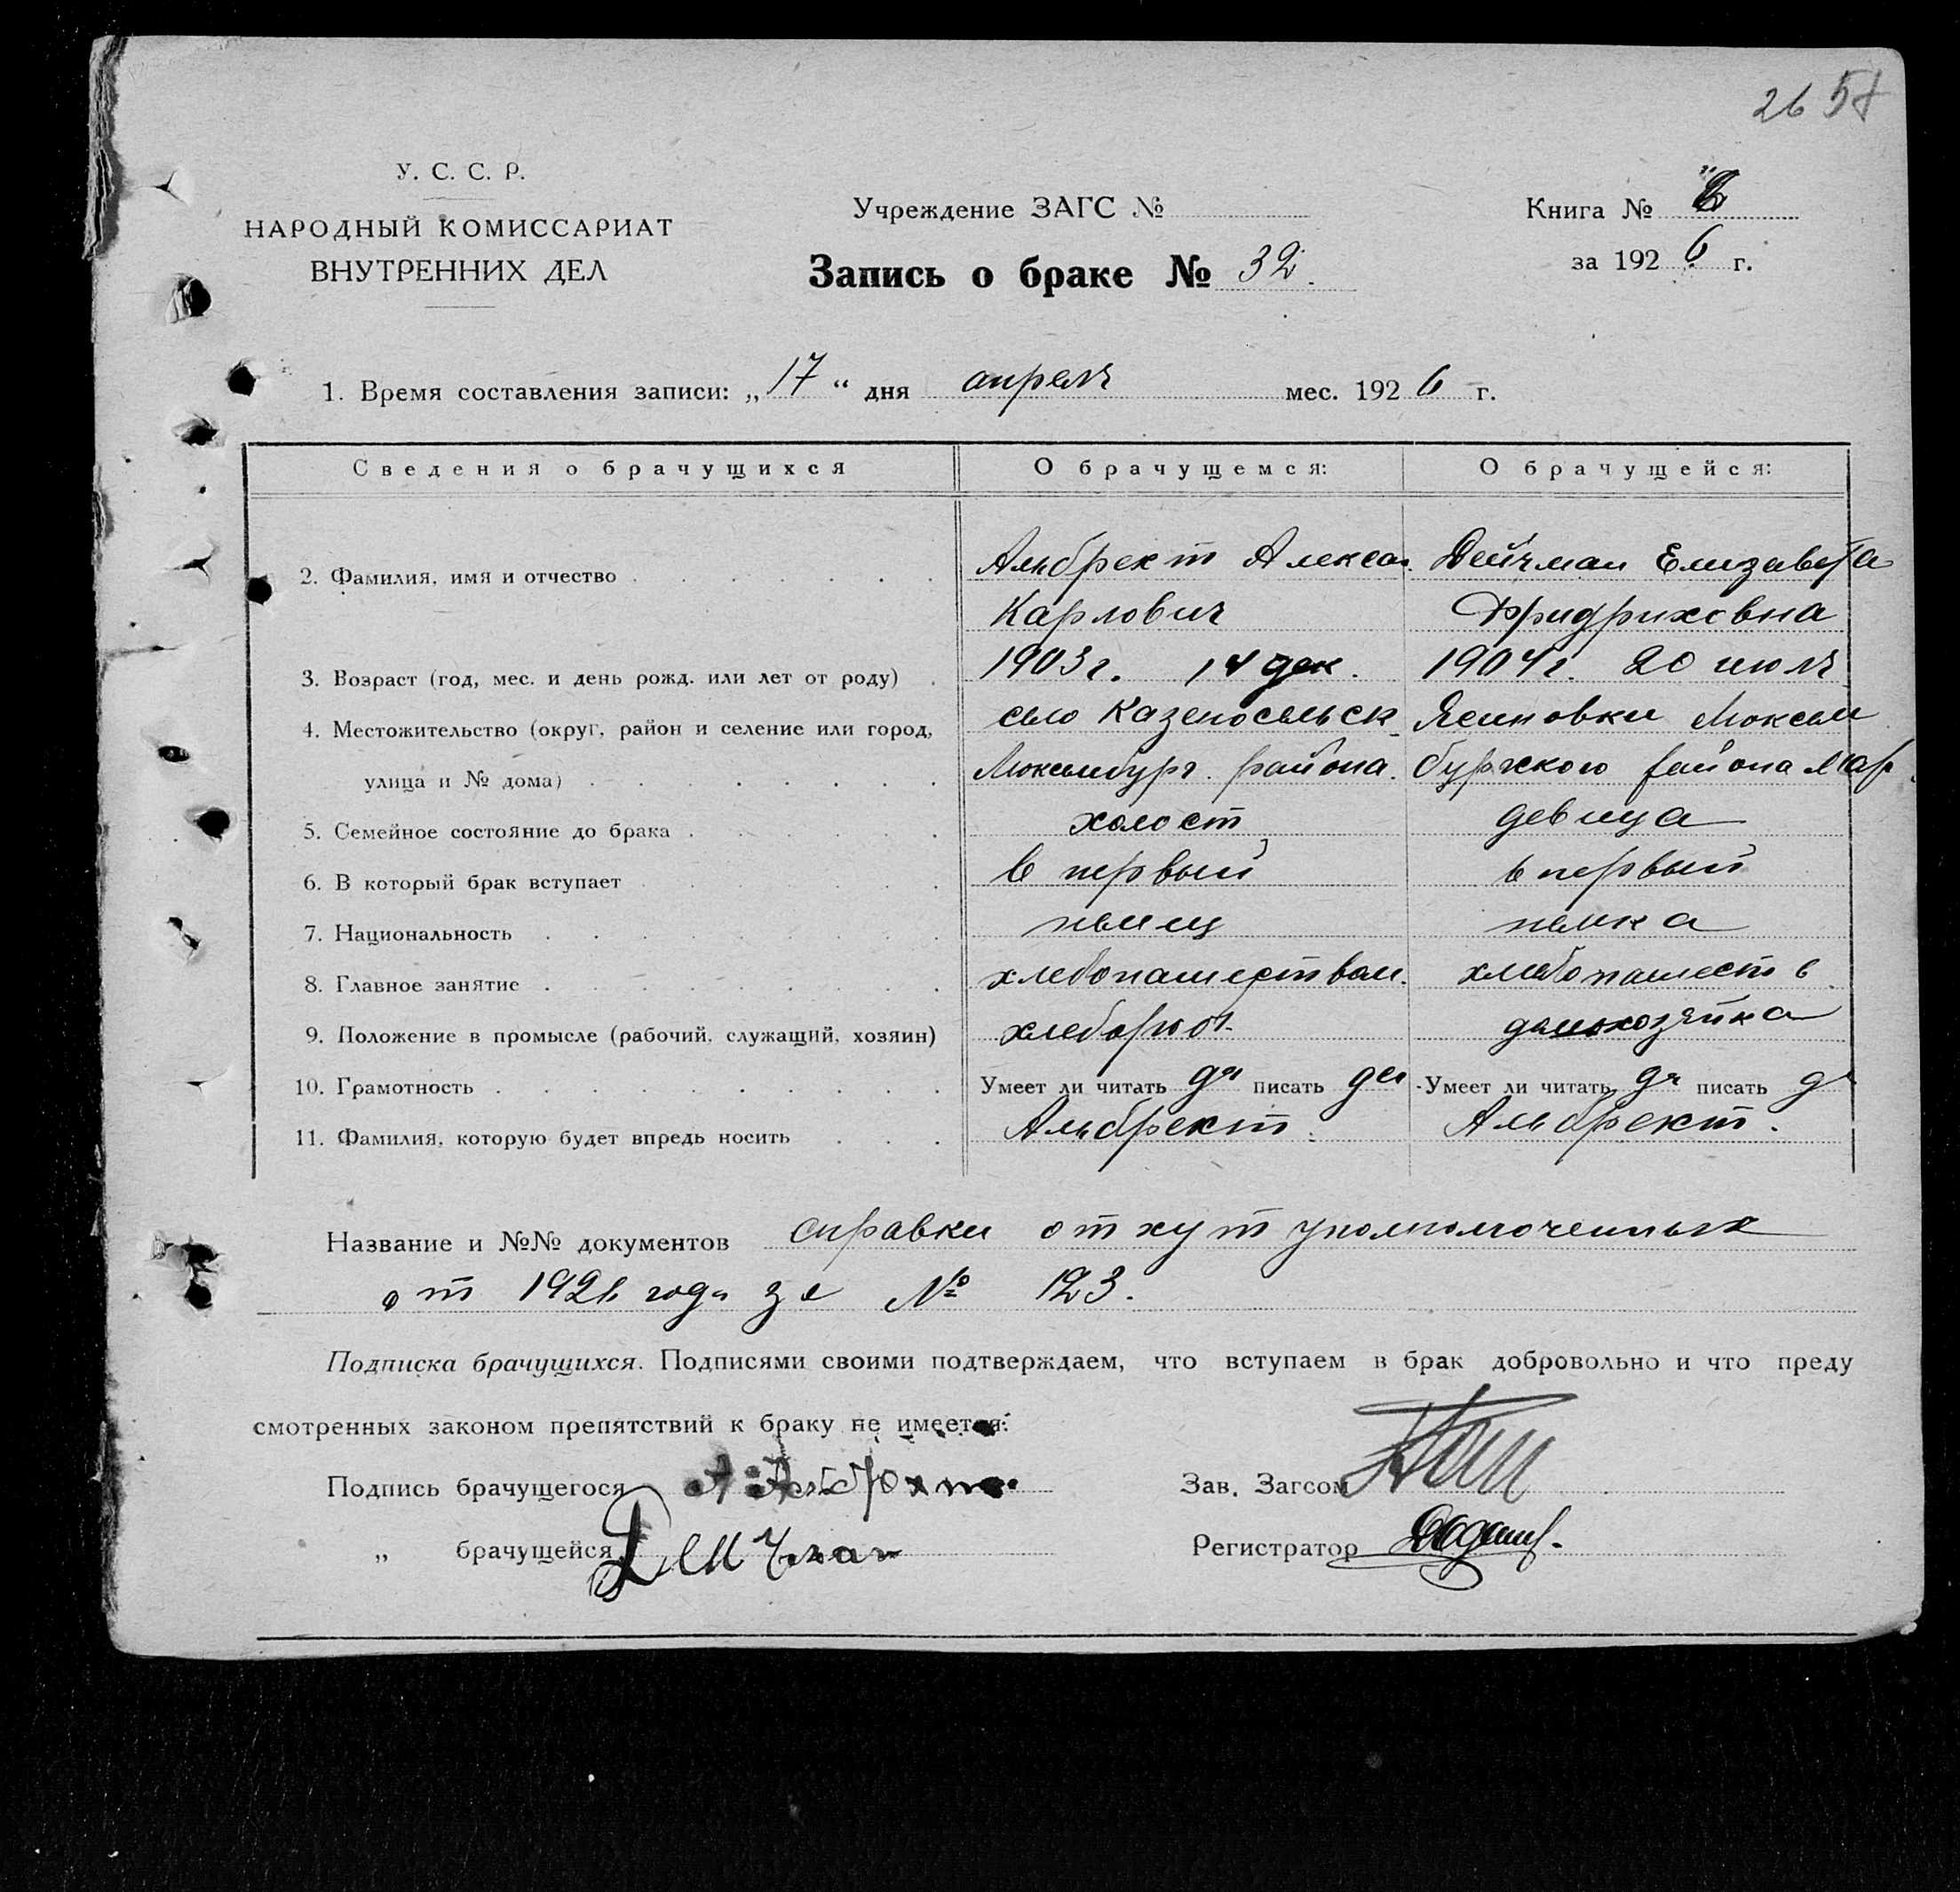 26 57
У. С. С. Р.
НАРОДНЫЙ КОМИССАРИАТ
ВНУТРЕННИХ ДЕЛ
Учреждение ЗАГС №
Запись о браке № 32.
Книга №
за 1926 г.
1. Время составления записи: „17“ дня апреля мес. 1926 г.
Сведения о брачущихся О брачущемся: О брачущейся:
Альбрехт Алекса. Дейчман Елизавета
2. Фамилия, имя и отчество
Карлович Фридриховна
3. Возраст (год, мес. и день рожд. или лет от роду) 1903 г. 14 дек. 1904 г. 20 июля
4. Местожительство (округ, район и селение или город, село Казеносельск Ясиновки Люксем
улица и № дома) Люксембург. района. бургского района Мар.
5. Семейное состояние до брака холост девица
6. В который брак вступает в первый в первый
7. Национальность немец немка
8. Главное занятие хлебопашеством. хлебопашеств
9. Положение в промысле (рабочий, служащий, хозяин) хлебороб. домохозяйка
10. Грамотность Умеет ли читать да писать да Умеет ли читать да писать да
11. Фамилия, которую будет впредь носить Альбрехт. Альбрехт.
Название и №№ документов справки от хут уполномоченных
от 1926 года за № 123.
Подписка брачущихся. Подписями своими подтверждаем, что вступаем в брак добровольно и что преду
смотренных законом препятствий к браку не имеется.
Подпись брачущегося А Альбрехт
Зав. Загсом
„ брачущейся Дейчман
Регистратор